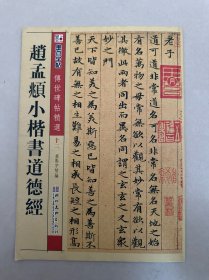 趙孟頫小楷書道德經
墨點字帖
傳世碑帖精選
十二
老子
道可道非常道名可名非常名無名天地之始
有名萬物之母常無欲以觀其妙常有欲以觀
其徼此兩者同出而異名同謂之玄玄之又玄衆
妙之門
天下皆知美之為美斯惡已皆知善之為善斯不
善已故有無之相生難易之相成長短之相形高